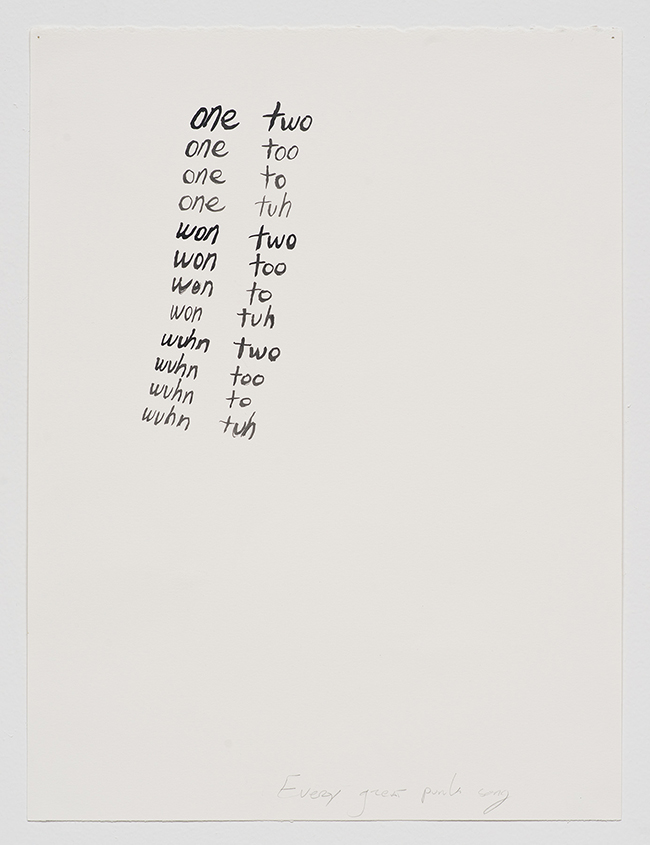 one two
one too
one to
one tuh
won two
won too
won to
won tuh
wuhn two
wuhn too
wuhn to
wuhn tuh
Every great punk song